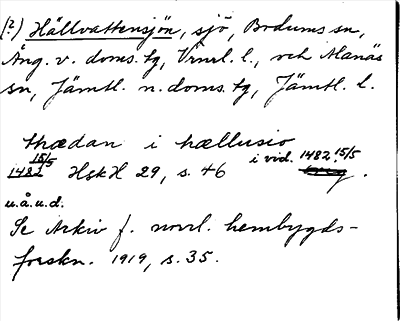 (?) Hällvattensjön, sjö, Bodums sn,
Ång. v. doms. tg, Vrnl. l., och Alanäs
sn, Jämtl. n. doms. tg, Jämtl. l.
thædan i hællusio
1482 15/5 HskH 29, s. 46 i vid. 1482 15/5
u.å.u.d.
Se Arkiv f. norrl. hembygds-
forskn. 1919, s. 35.